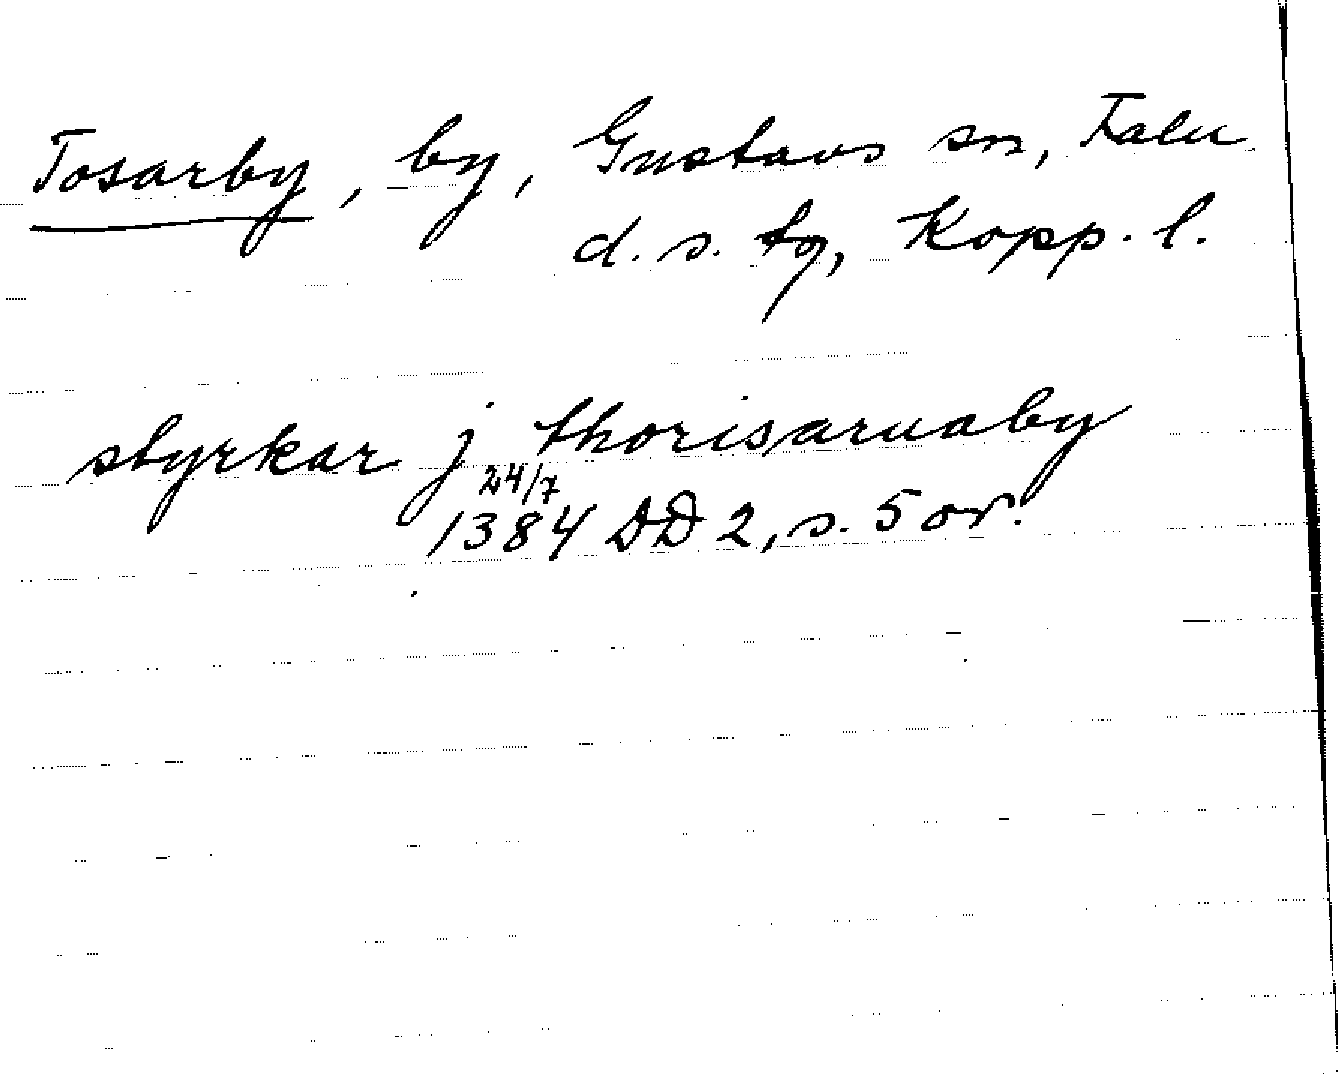 Tosarby, by, Gustavs sn, Falu
d. s. tg, Kopp. l.
styrkar j thorisaruaby
24/7
1384 DD 2, s. 5 or.